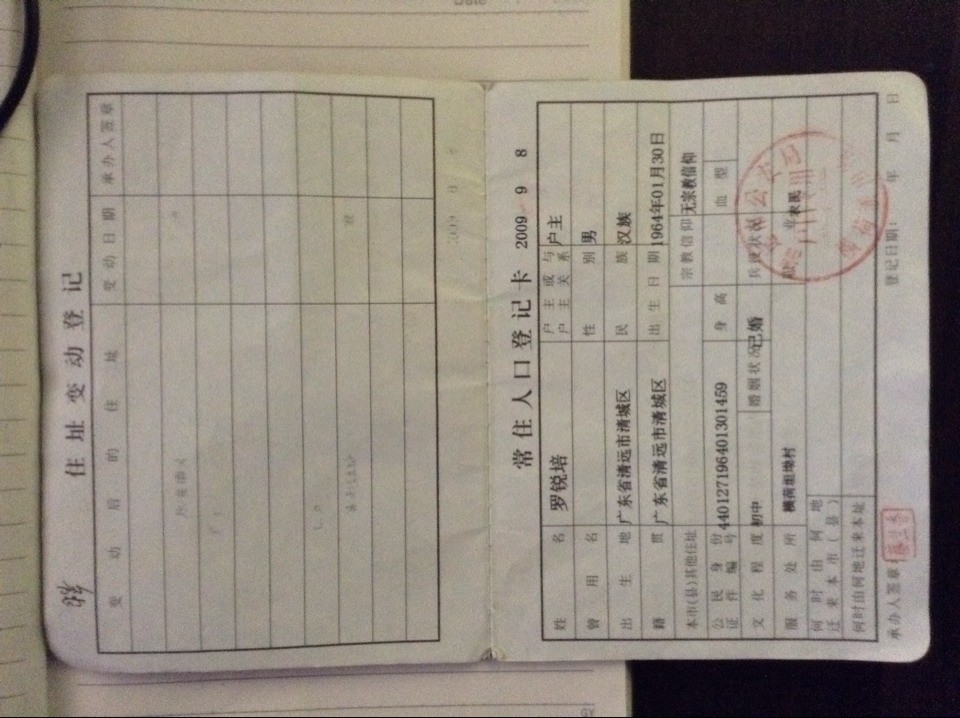 住址变动登记
变动后的住址 变动日期 承办人签章
常住人口登记卡 2009 9 8
姓名 罗锐培 户主或与户主关系 户主
曾用名 性别 男
出生地 广东省清远市清城区 民族 汉族
籍贯 广东省清远市清城区 出生日期 1964年01月30日
本市(县)其他住址 宗教信仰 无宗教信仰
公民身份证件编号 440127196401301459 身高 血型
文化程度 初中 婚姻状况 已婚 兵役状况
服务处所 横荷坦坳村 职业 农民
何时由何地迁来本市(县)
何时由何地迁来本址
承办人签章 登记日期: 年 月 日